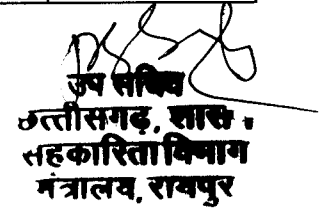 उप सचिव
छत्तीसगढ़, शासन
सहकारिता विभाग
मंत्रालय, रायपुर